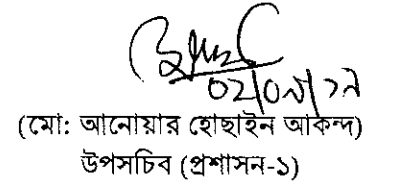 ০২|০৯|১৯
(মো: আনোয়ার হোছাইন আকন্দ)
উপসচিব (প্রশাসন-১)